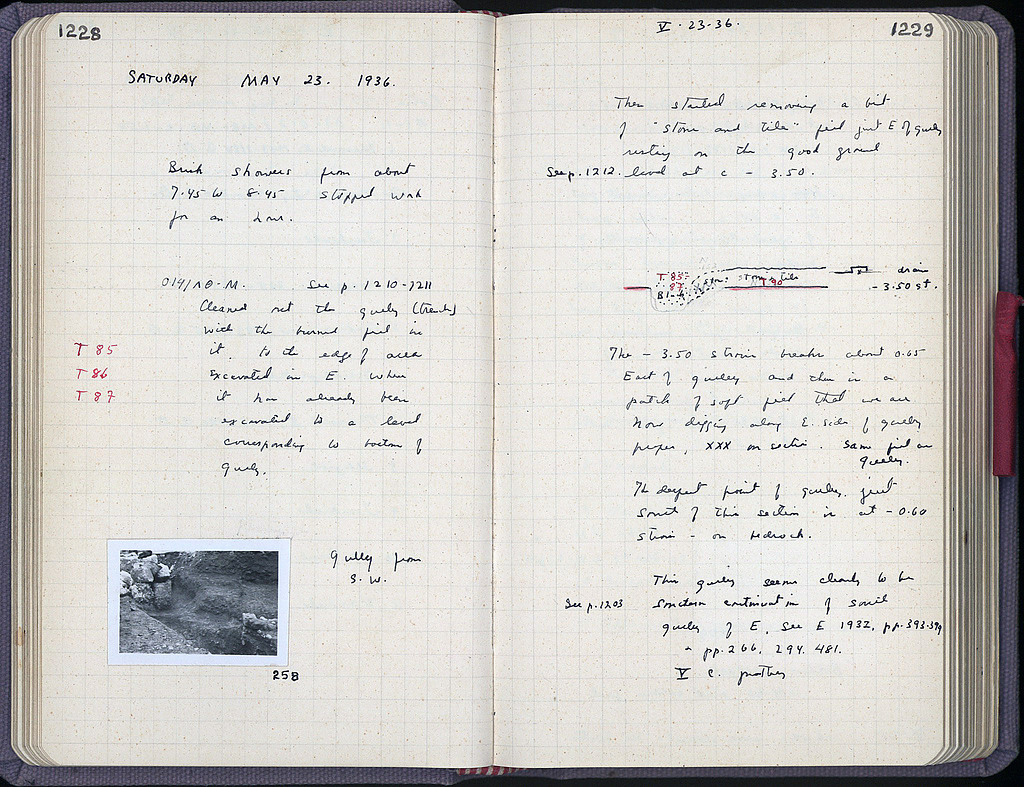 1228
SATURDAY MAY 23. 1936.
Brisk showers from about
7.45 to 8.45 stopped work
for an hour.
014/ΛΘ-Μ. See p. 1210-1211
Cleaned out the gulley (trench)
with the burned fill in
T 85 it, to the edge of area
T 86 Excavated in E. where
T 87 it has already been
excavated to a level
corresponding to bottom of
gully.
Gulley from
S.W.
258
V.23.36.
1229
Then started removing a bit
of "stone and tile" fill just E of gulley
resting on the good ground
See p. 1212. level at c - 3.50.
T. 85-
87
B1-4
stone + tile
90
drain
- 3.50 st.
The - 3.50 stroses breaks about 0.65
East of gulley and then is a
patch of soft fill that we are
now digging along E. side of gulley
proper, XXX on section. Same fill as
gulley.
The deepest point of gulley just
South of this section is at - 0.60
- on bedrock.
This gulley seems clearly to be
See p. 1203 Southern continuation of South
gulley of E, See E 1932, pp. 393-394
pp. 266, 294, 481.
V c. pottery